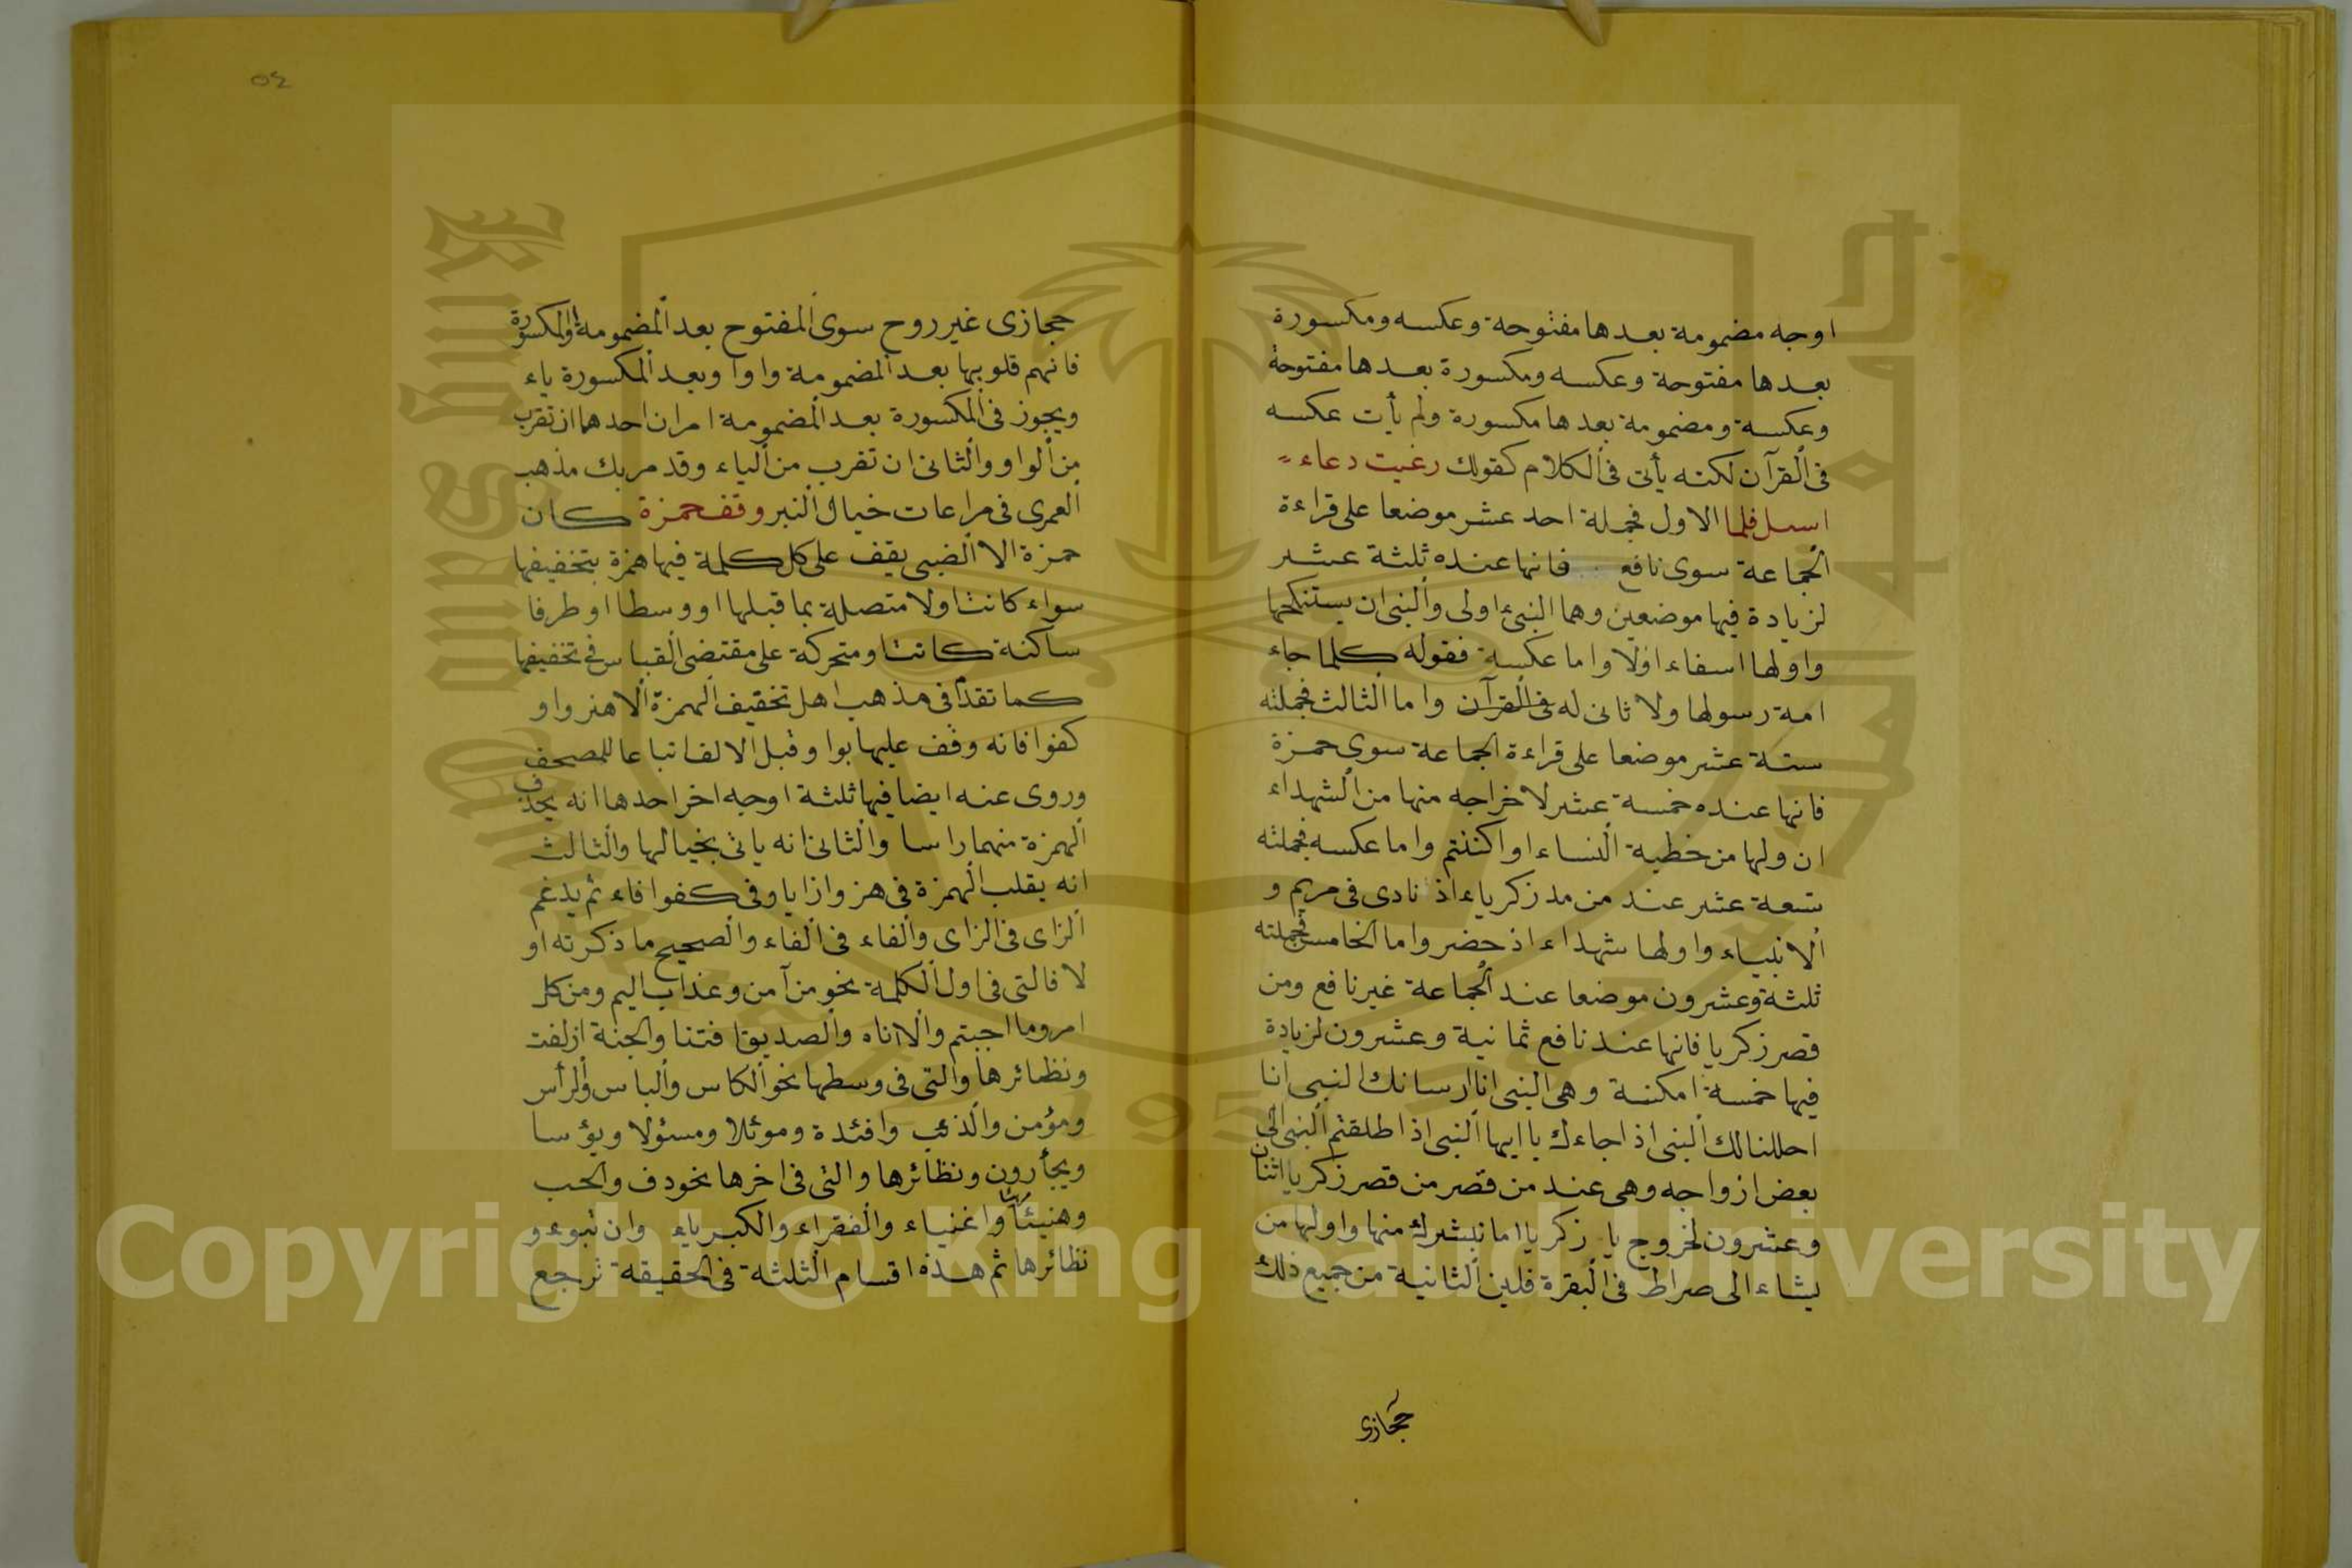 اوجه مضمومة بعدها مفتوحة وعكسه ومكسورة
بعدها مفتوحة وعكسه ومكسورة بعدها مفتوحة
وعكسه ومضمومة بعدها مكسورة ولم يأت عكسه
فى القرآن لكنه يأتى فى الكلام كقولك رغبت دعاء
ابسل فلما الاول فجملة احد عشر موضعا على قراءة
الجماعة سوى نافع فانها عنده ثلثة عشر
لزيادة فيها موضعين وهما النبئ اولى والنبى ان يستنكحها
واولها اسفاء اولا واما عكسه فقوله كلما جاء
امة رسولها ولا ثانى له فى القرآن واما الثالث فجملته
ستة عشر موضعا على قراءة الجماعة سوى حمزة
فانها عنده خمسة عشر لاخراجه منها من الشهداء
ان ولها من خطبة النساء او اكننتم واما عكسه فجملته
تسعة عشر عند من مد زكرياء اذ نادى فى مريم و
الانبياء واولها شهداء اذ حضر واما الخامس فجملته
ثلثة وعشرون موضعا عند الجماعة غير نافع ومن
قصر زكريا فانها عند نافع ثمانية وعشرون لزيادة
فيها خمسة امكنة وهى النبى انا ارسلناك النبى انا
احللنا لك النبى اذا جاءك يا ايها النبى اذا طلقتم النبى الى
بعض ازواجه وهى عند من قصر من قصر زكريا اثنان
وعشرون لخروج يا زكريا اما نبشرك منها واولها من
يشاء الى صراط فى البقرة فلين الثانية من جميع ذلك
حجازى
٥٤
حجازى غير روح سوى المفتوح بعد المضمومة او المكسورة
فانهم قلوبها بعد المضمومة واوا وبعد المكسورة ياء
ويجوز فى المكسورة بعد المضمومة امران احدهما ان تقرب
من الواو والثانى ان تقرب من الياء وقد مر بك مذهب
العمرى فى مراعات خيال النبر وقف حمزة كان
حمزة الا الضبى يقف على كل كلمة فيها همزة بتخفيفها
سواء كانت اولا متصلة بما قبلها او وسطا او طرفا
ساكنة كانت او متحركة على مقتضى القياس فى تخفيفها
كما تقدم فى مذهب اهل تخفيف الهمزة الا هزوا و
كفوا فانه وقف عليها بواو قبل الالف اتباعا للمصحف
وروى عنه ايضا فيها ثلثة اوجه اخر احدها انه يحذف
الهمزة منهما راسا والثانى انه ياتى بخيالها والثالث
انه يقلب الهمزة فى هزوا زايا وفى كفوا فاء ثم يدغم
الزاى فى الزاى والفاء فى الفاء والصحيح ما ذكرته او
لا فالتى فى اول الكلمة نحو من آمن وعذاب اليم ومن كل
امر وما اجبتم والا اناه والصديق افتنا والجنة ازلفت
ونظائرها والتى فى وسطها نحو الكاس والباس والرأس
ومؤمن والذئب وافئدة وموئلا ومسئولا ويؤسا
ويجأرون ونظائرها والتى فى اخرها نحو دف والخب
وهنيئا واغنياء والفقراء والكبرياء وان تبوء و
نظائرها ثم هذه اقسام الثلثة فى الحقيقة ترجع
Copyright © King Saud University